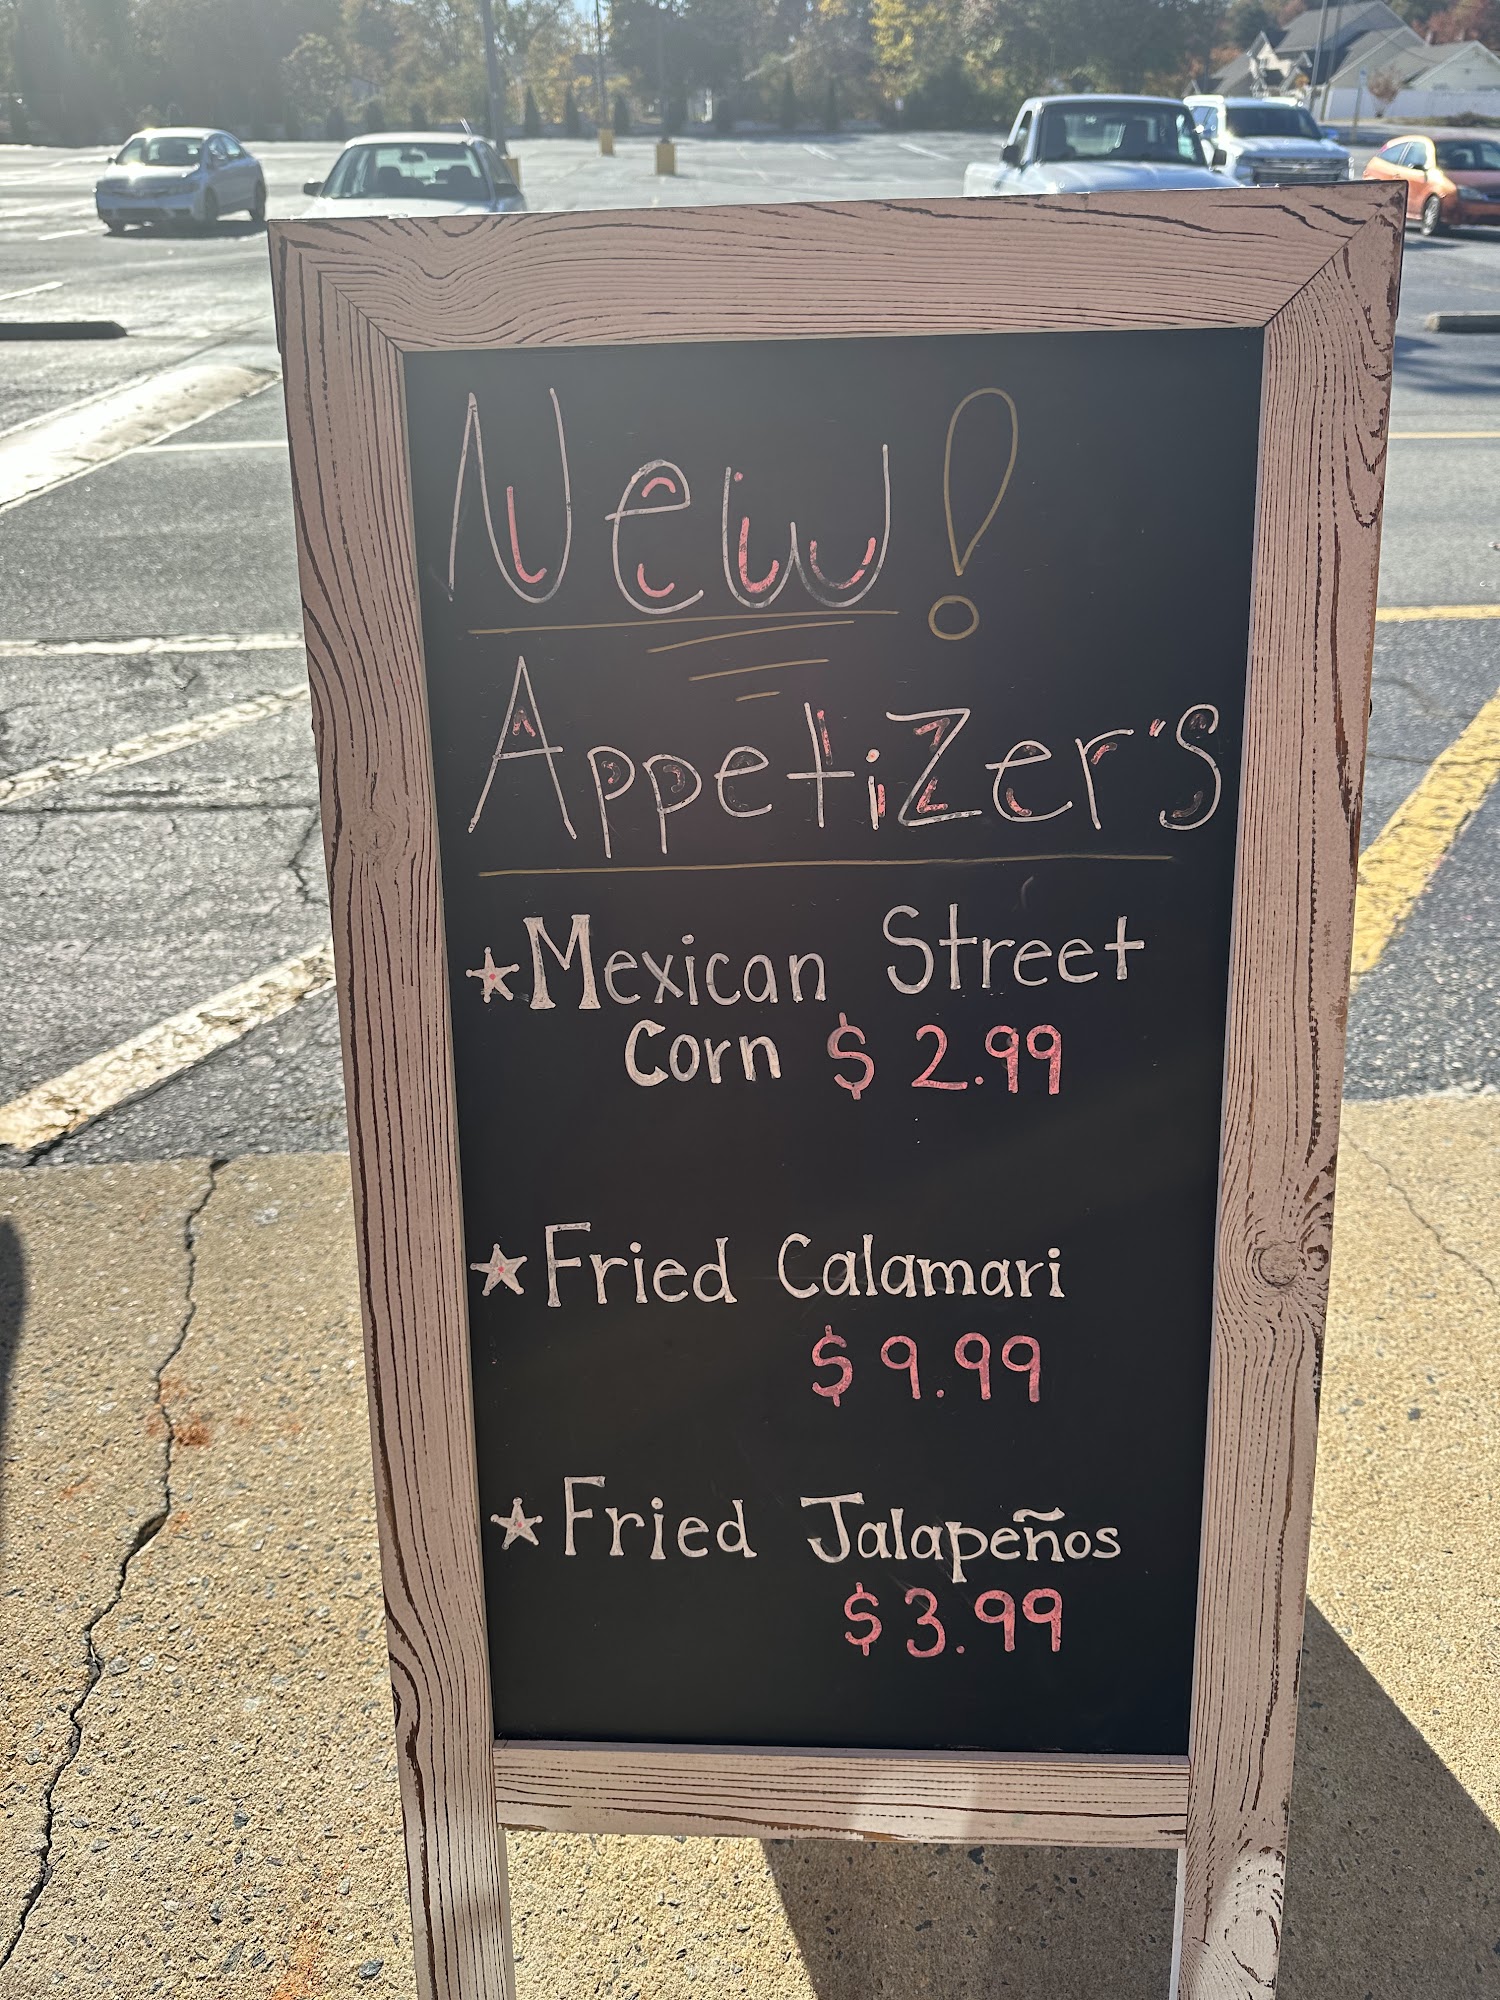 New!
Appetizer's
★Mexican Street
Corn $2.99
★Fried Calamari
$9.99
★Fried Jalapeños
$3.99